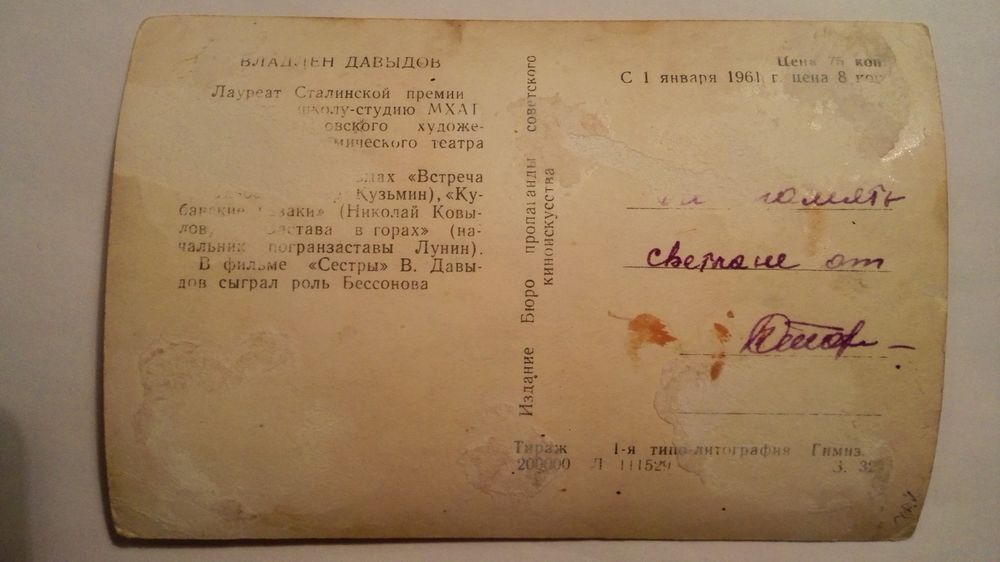 ВЛАДЛЕН ДАВЫДОВ
Лауреат Сталинской премии
школу-студию МХАТ
овского художе-
мического театра
лах «Встреча
Кузьмин), «Ку-
банские казаки» (Николай Ковы-
лов, застава в горах» (на-
чальник погранзаставы Лунин).
В фильме «Сестры» В. Давы-
дов сыграл роль Бессонова
Издание Бюро пропаганды советского
киноискусства
Цена 75 коп.
С 1 января 1961 г. цена 8 коп
на память
Светлане от
Тираж 1-я типо-литография Гимиз.
200000 Л 111529 З. 32